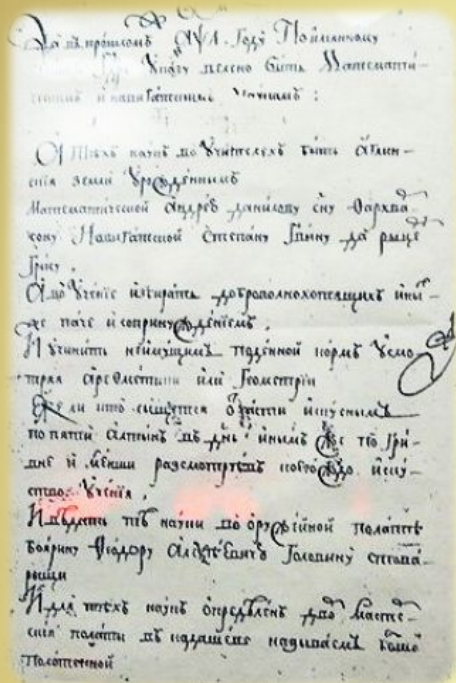 Да въ прошломъ ҂АѰА. Году Поимянному
Указу велено быть Математи-
ческимъ и навигацкимъ Наукамъ :
А тѣхъ наукъ во Учителехъ быть аглин-
скія земли Урожденнымъ
Математической андрею данилову сну Фархва-
сону Навигацкой Степану Гвыну да рыце
Грызу.
А во Ученіе избирать доброволнохотящихъ иных-
же паче и сопринужденіемъ.
И учинить неимущимъ поденной кормъ усмо-
тряя арефметики или Геометріи
Ежели кто сыщется отчасти искуснымъ
попяти алтынъ въ днь инымъ же по гри-
вне и менши разсмотревъ коегождо иску-
ство ученія.
И вѣдать тѣ науки во оружейной полатѣ
Боярину Ѳеодору алеѯѣевичю Головину стова-
рыщи
И для тѣхъ наукъ определенъ дворъ мастер-
скія полаты въ кадашеве называемъ болшой
Полотенной